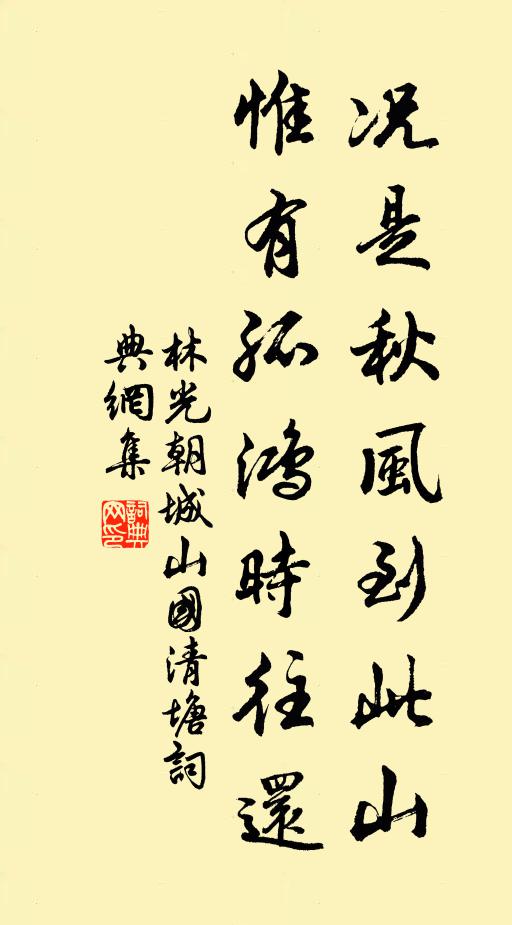 况是秋風到此山
惟有孤鴻時往還
林光朝城山國清塘詞
典網集
詞典
网印